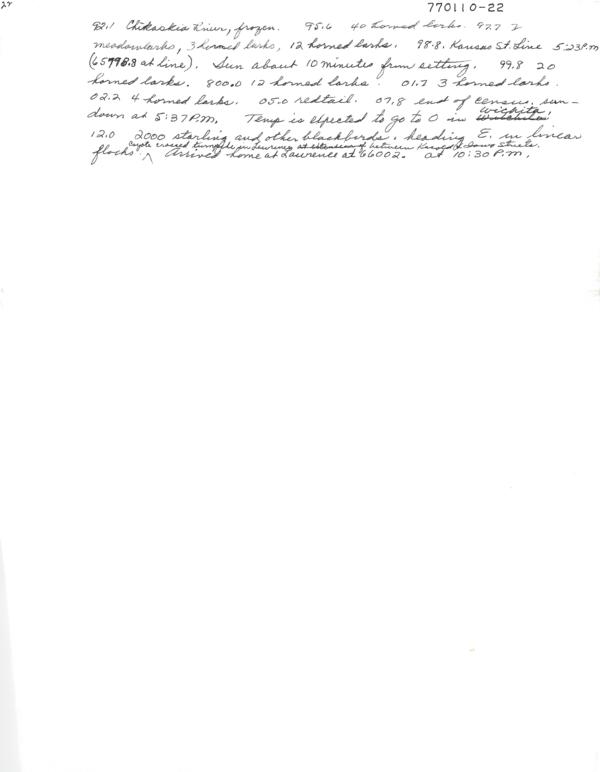 22
770110-22
92.1 Chikaskia River, frozen. 95.6 40 horned larks. 97.7 2
meadowlarks, 3 horned larks, 12 horned larks. 98.8. Kansas St. Line 5:23 P.M
(65798.8 at line). Sun about 10 minutes from setting. 99.8 20
horned larks. 800.0 12 horned larks. 01.7 3 horned larks.
02.2 4 horned larks. 05.0 redtail. 07.8 end of census, sun-
down at 5:37 P.M. Temp is expected to go to 0 in Wichita.
12.0 2000 starling and other blackbirds, heading E. in linear
Coyote crossed turnpike in Lawrence at extension of between Kasold & Iowa Streets.
flocks ^ Arrived home at Lawrence at 66002. at 10:30 P.M.